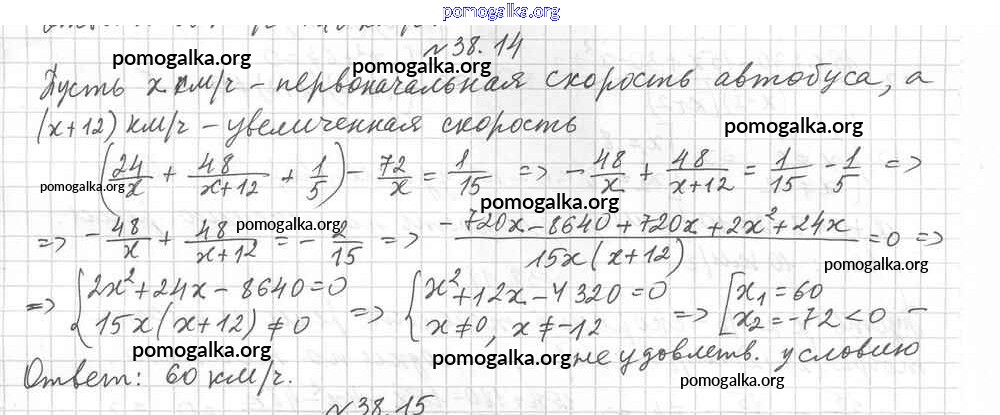 pomogalka.org
№38.14
pomogalka.org pomogalka.org
Пусть x км/ч - первоначальная скорость автобуса, а
(x+12) км/ч - увеличенная скорость
pomogalka.org
(24/x + 48/(x+12) + 1/5) - 72/x = 1/15 => -48/x + 48/(x+12) = 1/15 - 1/5 =>
pomogalka.org pomogalka.org
=> -48/x + 48/(x+12) = -2/15 => (-720x-8640+720x+2x²+24x)/(15x(x+12)) = 0 =>
pomogalka.org pomogalka.org
=> { 2x²+24x-8640=0 => { x²+12x-4320=0 => [ x₁=60
15x(x+12)≠0 x≠0, x≠-12 x₂=-72<0 -
pomogalka.org pomogalka.org не удовлетв. условию
Ответ: 60 км/ч. pomogalka.org
№38.15